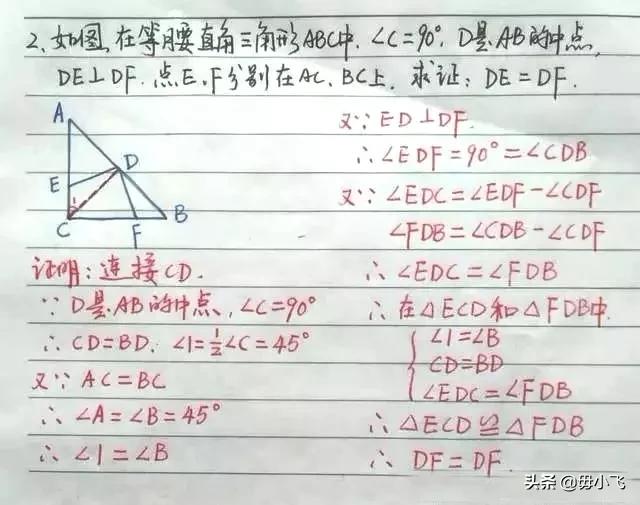 2、如图,在等腰直角三角形ABC中,∠C=90°,D是AB的中点,
DE⊥DF,点E、F分别在AC、BC上,求证:DE=DF.
A
D
E
1
C
F
B
证明:连接CD.
∵D是AB的中点,∠C=90°
∴CD=BD,∠1=½∠C=45°
又∵AC=BC
∴∠A=∠B=45°
∴∠1=∠B
又∵ED⊥DF.
∴∠EDF=90°=∠CDB
又∵∠EDC=∠EDF-∠CDF
∠FDB=∠CDB-∠CDF
∴∠EDC=∠FDB
∴在△ECD和△FDB中.
∠1=∠B
CD=BD
∠EDC=∠FDB
∴△ECD≌△FDB
∴DF=DF.
头条@毋小飞